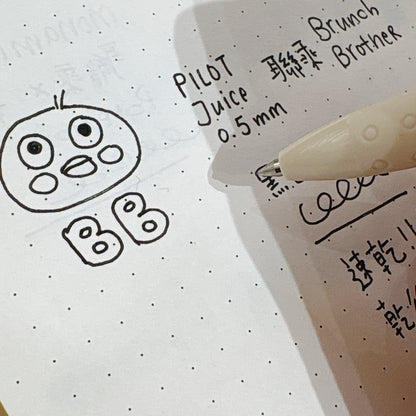 PILOT
Juice
0.5mm
聯乘
Brunch
Brother
BB
速乾!!
乾